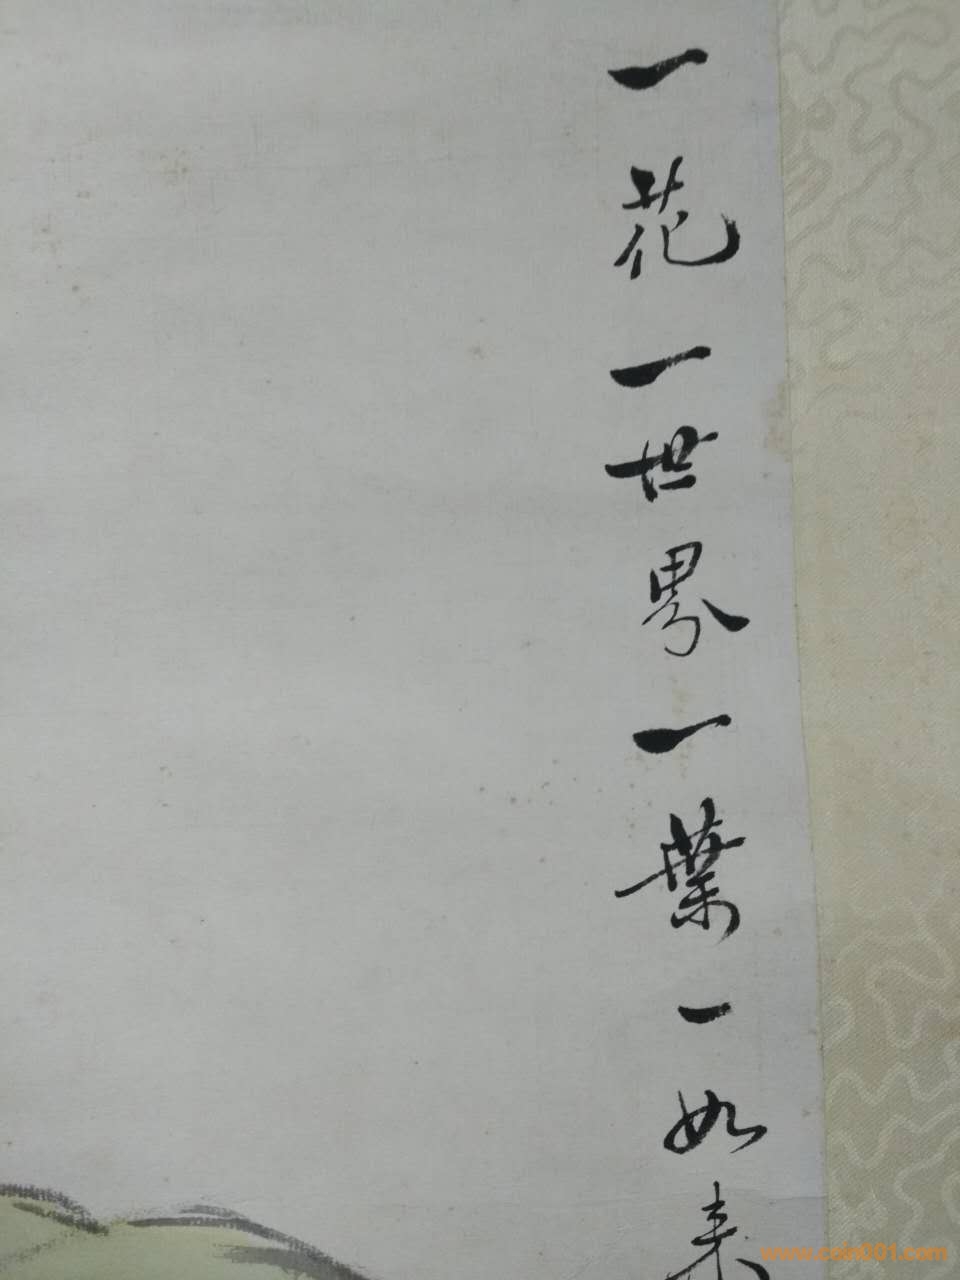 一花一世界一葉一如来
www.csln001.com